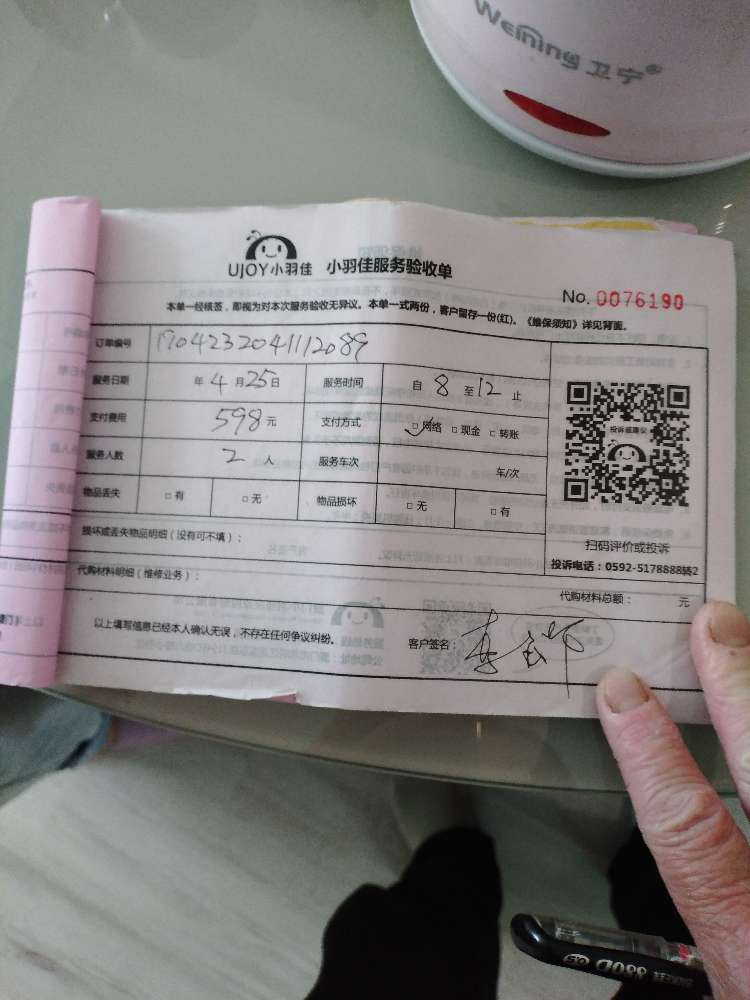 Weining 卫宁®
UJOY小羽佳 小羽佳服务验收单
No. 0076190
本单一经核签，即视为对本次服务验收无异议。本单一式两份，客户留存一份(红)。《维保须知》详见背面。
订单编号 1904232041112089
服务日期 年 4 月 25 日 服务时间 自 8 至 12 止
支付费用 598 元 支付方式 ☑网络 □现金 □转账
服务人数 2 人 服务车次 车/次
物品丢失 □有 □无 物品损坏 □无 □有
投诉或建议
扫码评价或投诉
投诉电话：0592-5178888转2
损坏或丢失物品明细（没有可不填）：
代购材料明细（维修业务）： 代购材料总额： 元
以上填写信息已经本人确认无误，不存在任何争议纠纷。 客户签名：